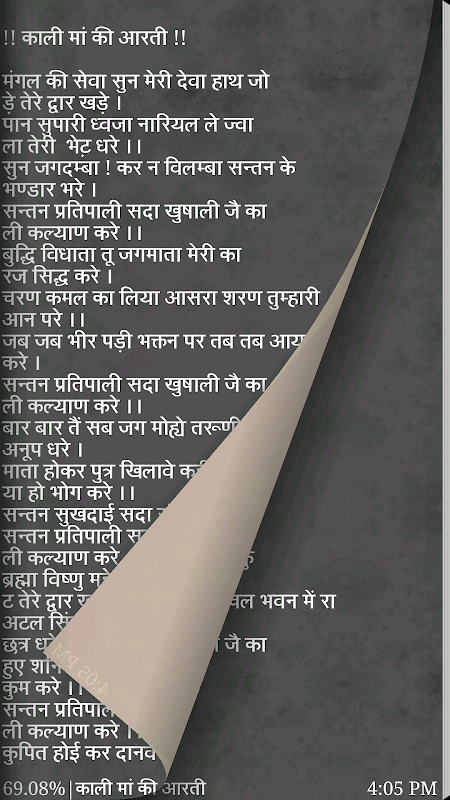 !! काली मां की आरती !!
मंगल की सेवा सुन मेरी देवा हाथ जो
ड़े तेरे द्वार खड़े ।
पान सुपारी ध्वजा नारियल ले ज्वा
ला तेरी भेट़ धरे ।।
सुन जगदम्बा ! कर न विलम्बा सन्तन के
भण्डार भरे ।
सन्तन प्रतिपाली सदा खुषाली जै का
ली कल्याण करे ।।
बुद्धि विधाता तू जगमाता मेरी का
रज सिद्ध करे ।
चरण कमल का लिया आसरा शरण तुम्हारी
आन परे ।।
जब जब भीर पड़ी भक्तन पर तब तब
करे ।
सन्तन प्रतिपाली सदा खुषाली जै का
ली कल्याण करे ।।
बार बार तैं सब जग मोह्ये
अनूप धरे ।
माता होकर पुत्र खिलावे
या हो भोग करे ।।
सन्तन सुखदाई सदा
सन्तन प्रतिपाली
ली कल्याण करे
ब्रह्मा विष्णु
ट तेरे द्वार भवन में रा
अटल
छत्र जै का
हुए
कुम करे ।।
सन्तन
ली कल्याण करे ।
कुपित होई कर दानव
69.08% काली मां की आरती 4:05 PM